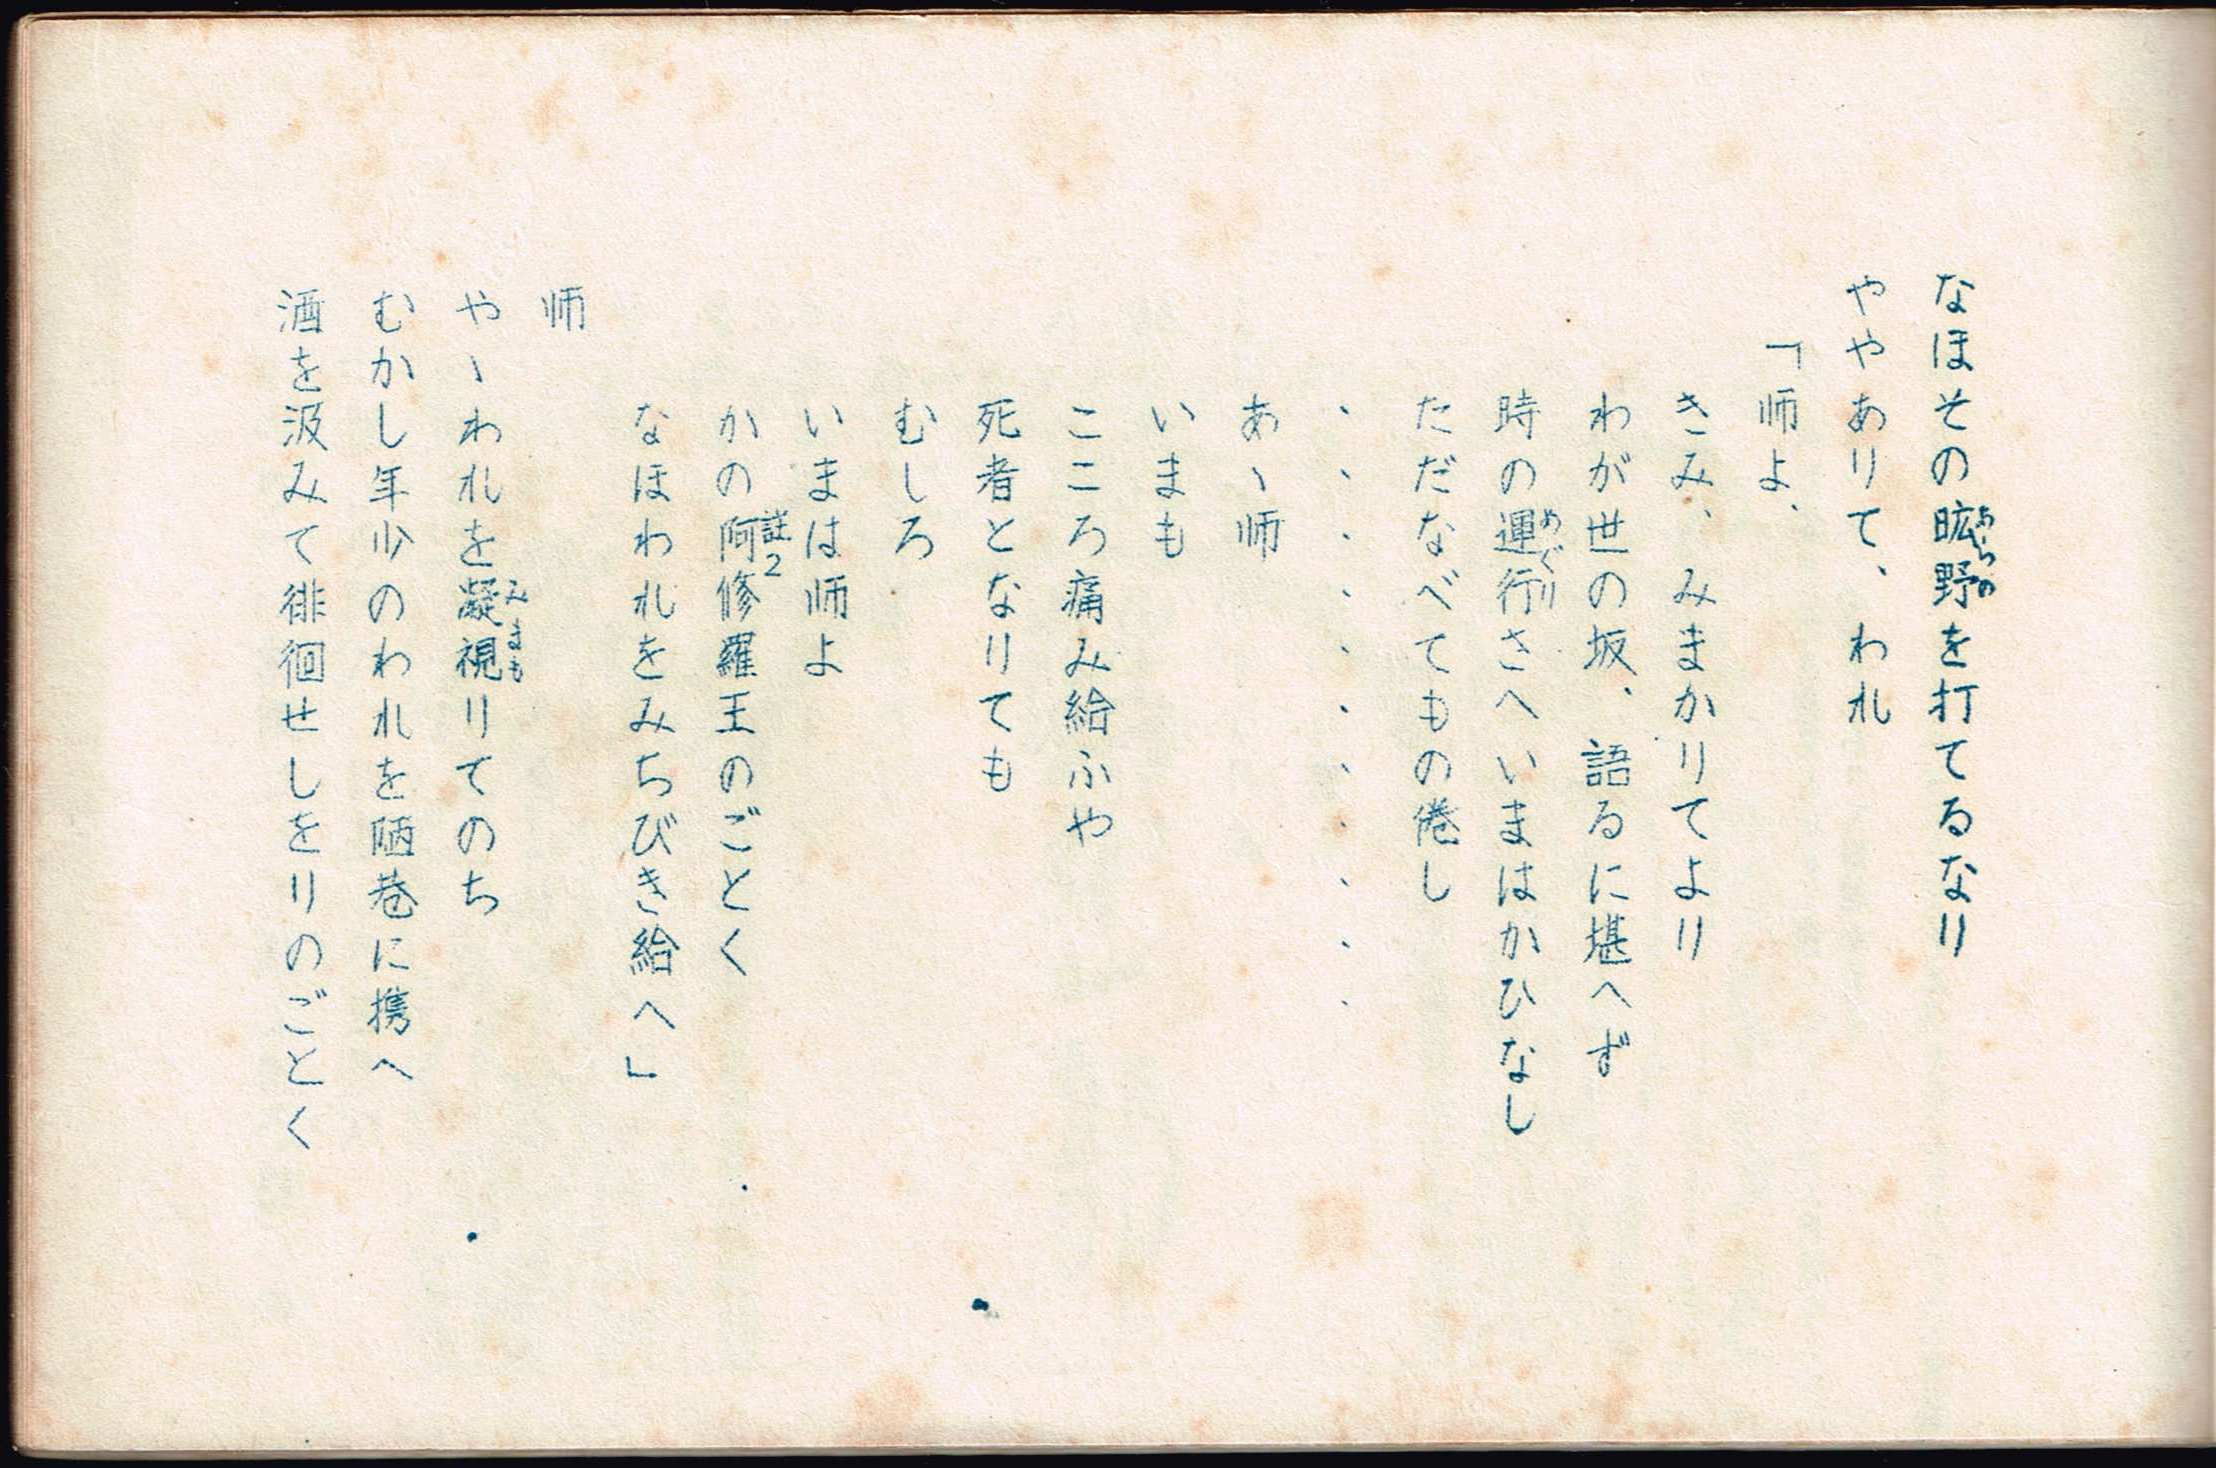 なほその昿野を打てるなり
ややありて、われ
「师よ、
きみ、みまかりてより
わが世の坂、語るに堪へず
時の運行さへいまはかひなし
ただなべてもの倦し
、、、、、、、、、、、
あゝ师
いまも
こころ痛み給ふや
死者となりても
むしろ
いまは师よ
かの阿修羅王のごとく
なほわれをみちびき給へ」
师
やゝわれを凝視りてのち
むかし年少のわれを陋巷に携へ
酒を汲みて徘徊せしをりのごとく
あらの
めぐり
註2
みまも